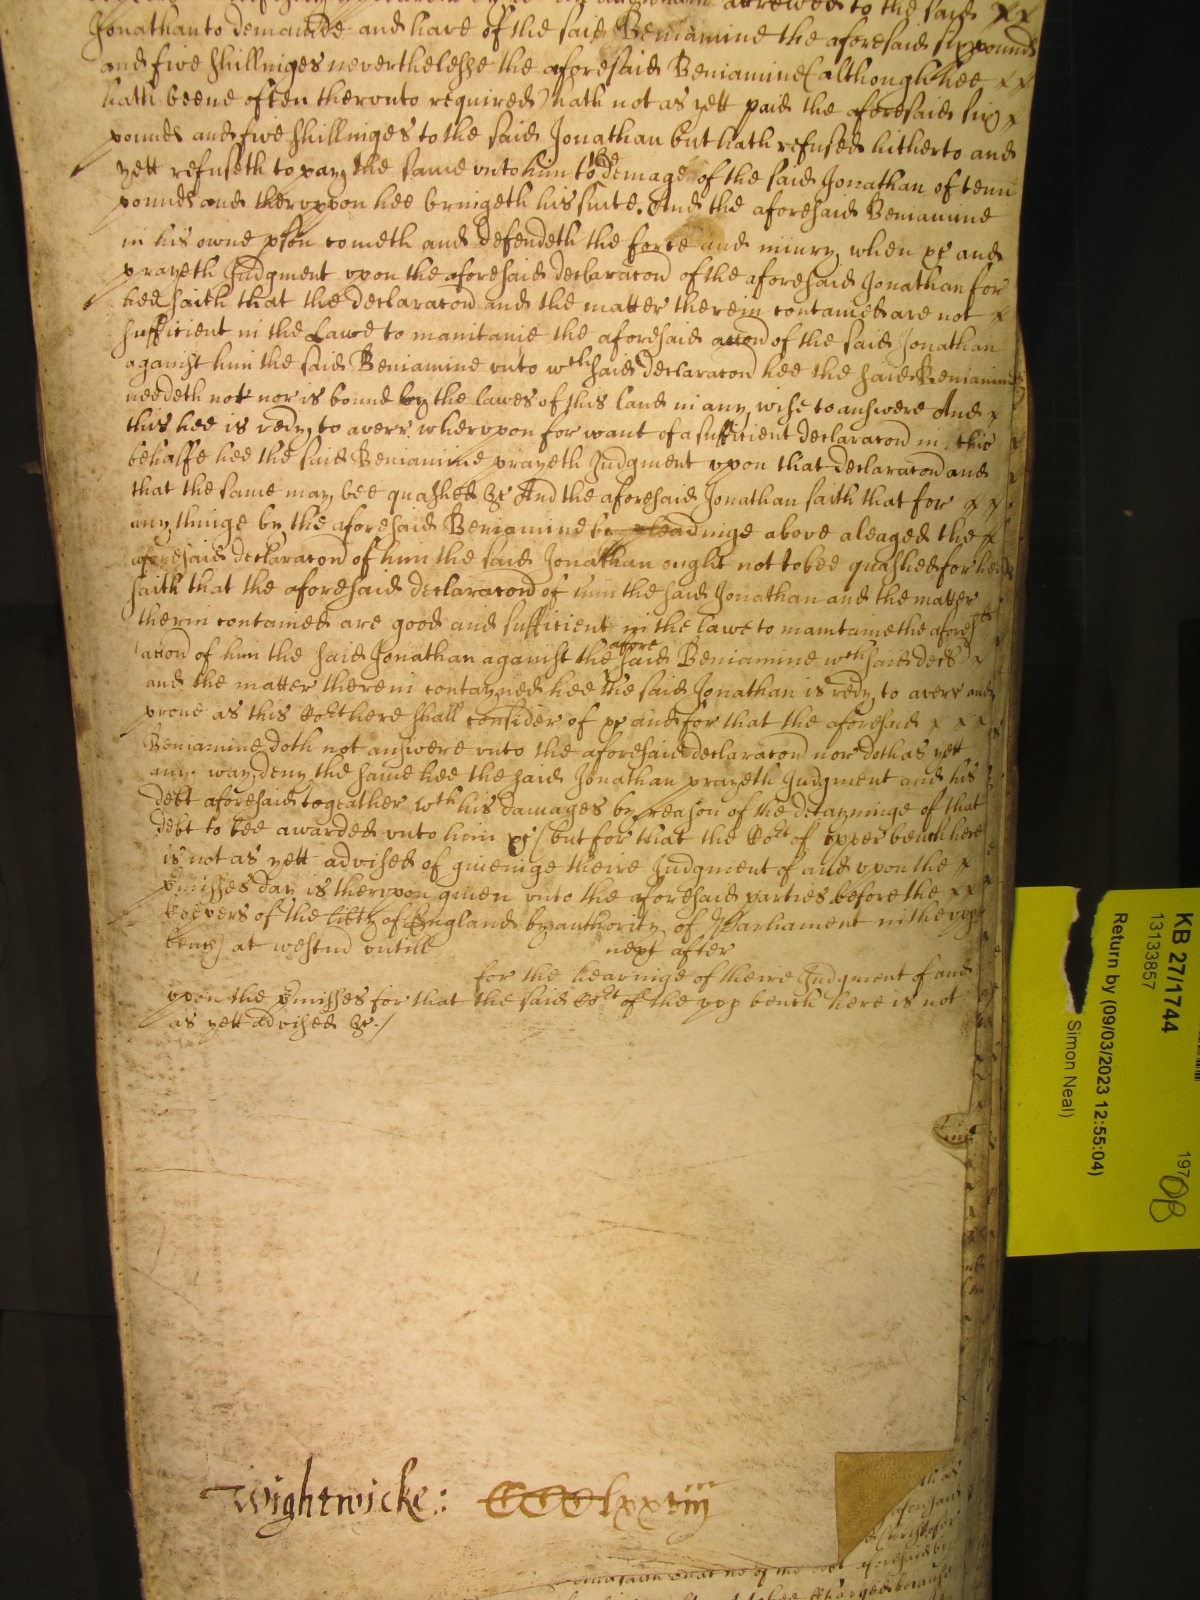 accrewed to the said x x
Jonathan to demaunde and have of the said Beniamine the aforesaid six pounds
and five shillinges neverthelesse the aforesaid Beniamine (although hee x x
hath beene often therunto required) hath not as yett paid the aforesaid six x
pounds and five shillinges to the said Jonathan but hath refused hitherto and
yett refuseth to pay the same unto him to the demage of the said Jonathan of tenn
pounds and therupon hee bringeth his suite. And the aforesaid Beniamine
in his owne pson cometh and defendeth the force and iniury when &c and
prayeth Judgment upon the aforesaid declaracon of the aforesaid Jonathan for
hee saith that the declaracon and the matter therein contained are not x
sufficient in the Lawe to maintaine the aforesaid accon of the said Jonathan
against him the said Beniamine unto wch said declaracon hee the said Beniamine
needeth not nor is bound by the lawes of this land in any wise to answere And x
this hee is redy to averr wherupon for want of a sufficient declaracon in this
behalfe hee the said Beniamine prayeth Judgment upon that declaracon and
that the same may bee quashed &c And the aforesaid Jonathan saith that for x x
any thinge by the aforesaid Beniamine by pleadinge above aleaged the x
aforesaid declaracon of him the said Jonathan ought not to bee quashed for hee
saith that the aforesaid declaracon of him the said Jonathan and the matter
therin contained are good and sufficient in the lawe to maintaine the aforesaid
accon of him the said Jonathan against the aforesaid Beniamine wch said decl x
and the matter therein contayned hee the said Jonathan is redy to averr and
prove as this Cort here shall consider of &c and for that the aforesaid x x x
Beniamine doth not answere unto the aforesaid declaracon nor doth as yett
any way deny the same hee the said Jonathan prayeth Judgment and his
debt aforesaid togeather wth his damages by reason of the detayninge of that
debt to bee awarded unto him &c / but for that the Cort of upper bench here
is not as yett advised of giveinge theire Judgment of and upon the x
pmisses day is therupon given unto the aforesaid parties before the x x
Keepers of the libty of England by authority of Parliament in the upp
bench at westm untill next after
for the hearinge of theire Judgment of and
upon the pmisses for that the said Cort of the upp bench here is not
as yett advised &c./
Wightwicke: CCCClxxviij
KB 27/1744
13133857
Return by (09/03/2023 12:55:04)
Simon Neal)
197